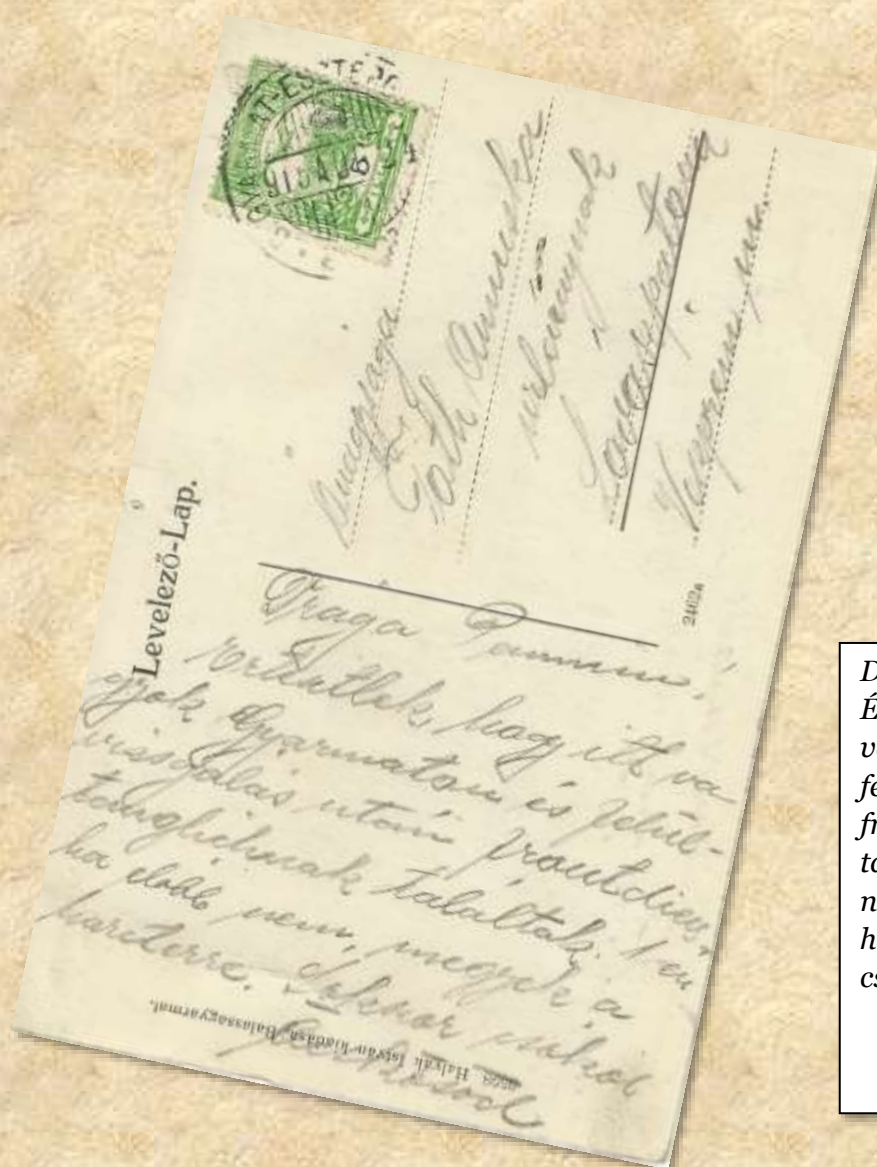 Levelező-Lap.
Tóth Annuska
Lovászpatona
Veszprém m.
2462a
Drága Pannim!
Értesítlek, hogy itt va-
gyok Gyarmaton és felül-
vizsgálás után frontdiens-
tauglichnak találtak. 1 én
ha előbb nem, megyek a
harctérre. Sokszor csókol
Halyák István kiadása, Balassagyarmat.
D
É
v
fe
fr
ta
n
h
cs